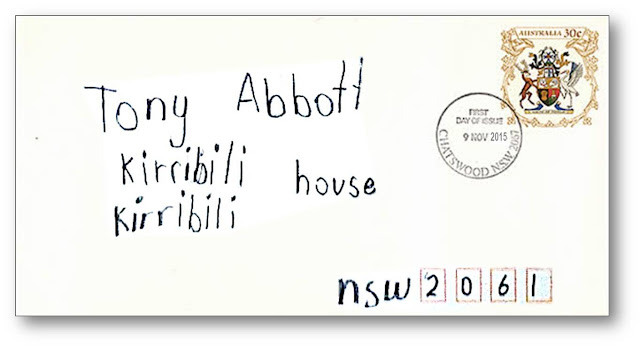 AUSTRALIA 30c
FIRST
DAY OF ISSUE
9 NOV 2015
CHATSWOOD NSW 2067
Tony Abbott
Kirribili house
Kirribili
nsw 2061